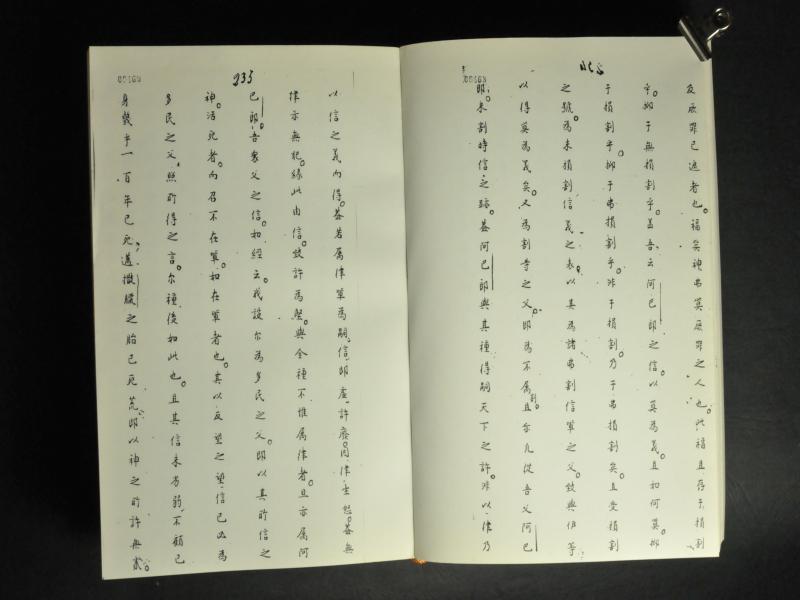 反厥罪已遮者也。福矣神弗算厥罪之人也。此福且存于損割
乎。抑于無損割乎。盖吾云阿巴郎之信。以算為義。且如何算。抑
于損割乎。抑于弗損割乎。非于損割。乃于弗損割矣。且受損割
之號。為未損割信義之表。以其為諸弗割信輩之父。致與伊等
以得算為義矣。又為割等之父。即為不属割。且亦凡從吾父阿巴
郎。未割時信之跡。盖阿巴郎與其種得嗣天下之許。非以律乃
233
以信之義而得。盖若属律輩為嗣。信即虚。許廢。因律生怒。盖無
律亦無犯。緣此由信。致許為堅。與全種不惟属律者。且亦属阿
巴郎。吾衆父之信。如經云。我設尔為多民之父。即以其所信之
神。活死者。而召不在輩。如在輩者也。其以反望之望。信己必為
多民之父。照所得之言。尔種後如此也。且其信未為弱。不顧己
身幾乎一百年已死。邁撒臘之胎已死荒。即以神之所許無貳。